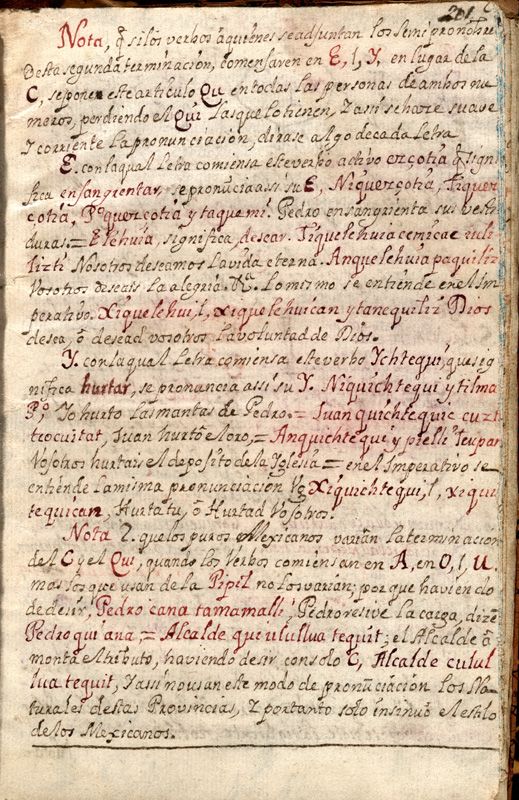 201
Nota, q̃ si los verbos aquienes se adjuntan los semipronõbres
Desta segunda terminacion, comensaren en E, l, Y, en lugar de la
C, se pone este articulo Qu en todas las personas de ambos nu
meros, perdiendo el Qui las que lo tienen, Y assi se hace suave
Y corriente la pronunciacion, dirase algo de cada Letra
E. con la qual Letra comiensa este verbo activo ezçotia q̃ sign
fica ensangrentar, se pronuncia assi su E, Niquezçotia, Tiquez
çotia, Pº quezçotia y taquemi. Pedro ensangrienta sus vesti
duras = Elehuia, significa, desear. Tiquelehuia cemicac
liztí Nosotros deseamos la vida eterna. Anquelehuia paquiliz
Vosotros deseais la alegria. &ª. Lo mismo se entiende en el Im
perativo. Xiquelehui, l, xiquelehuican ytanequiliz Dios
desea, ó desead vosotros la voluntad de Dios.
Y. con la qual Letra comiensa este verbo Ychtequi, que sig
nifica hurtar, se pronuncia assi su Y. Niquichtequi ytilma
Pº. Yo hurto las mantas de Pedro. = Juan quichtequic cuzt
teocuitat, Juan hurtò el oro, = Anquichtequi y pielli Teupan
Vosotros hurtais el deposito de la Iglesia = en el Imperativo se
entiende la misma pronunciacion Vg Xiquichtequi, l, xiquich
tequican, Hurta tu, ó Hurtad Vosotros.
Nota 2. que los puros Mexicanos varian la terminacion
del C y el Qui, quando los Verbos comiensan en A, en O, l, U.
mas los que usan de la Pipil no los varian; por que haviendo
de desir, Pedro cana tamamalli, Pedro resive la carga, dize
Pedro qui ana = Alcalde qui ululua tequit; el Alcalde a
montà el tributo, haviendo desir con solo C, Alcalde culul
lua tequit, Y assi no usan este modo de pronunciacion los Na
turales destas Provincias, Y por tanto solo insinuo el estilo
de los Mexicanos.